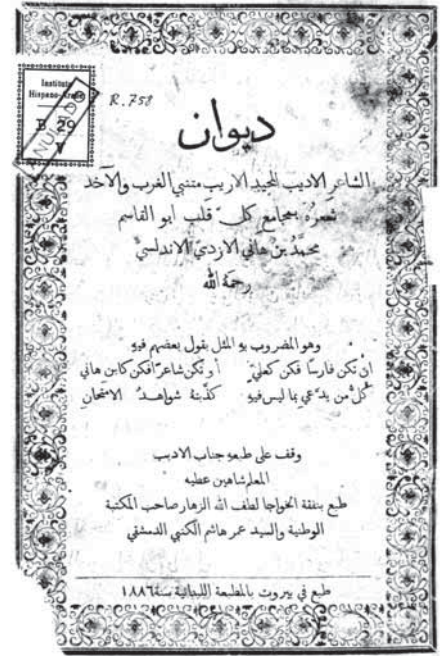 Instituto
Hispano-Arabe
B 29
V
ANULADO
R. 758
ديوان
الشاعر الاديب المجيد الاريب متنبي الغرب والآخذ
شعرُهُ بمجامع كل قلب ابو القاسم
محمَّدُ بن هاني الازديّ الاندلسيُّ
رحمهُ الله
وهو المضروب بهِ المثل بقول بعضهم فيهِ
ان تكن فارسًا فكن كعليٍّ او تكن شاعرًا فكن كابن هاني
كلُّ من يدَّعي بما ليس فيهِ كذَّبتهُ شواهدُ الامتحانِ
وقف على طبعهِ جناب الاديب
المعلم شاهين عطيه
طبع بنفقة الخواجا لطف الله الزهار صاحب المكتبة
الوطنية والسيد عمر هاشم الكتبي الدمشقي
طبع في بيروت بالمطبعة اللبنانية سنة ١٨٨٦